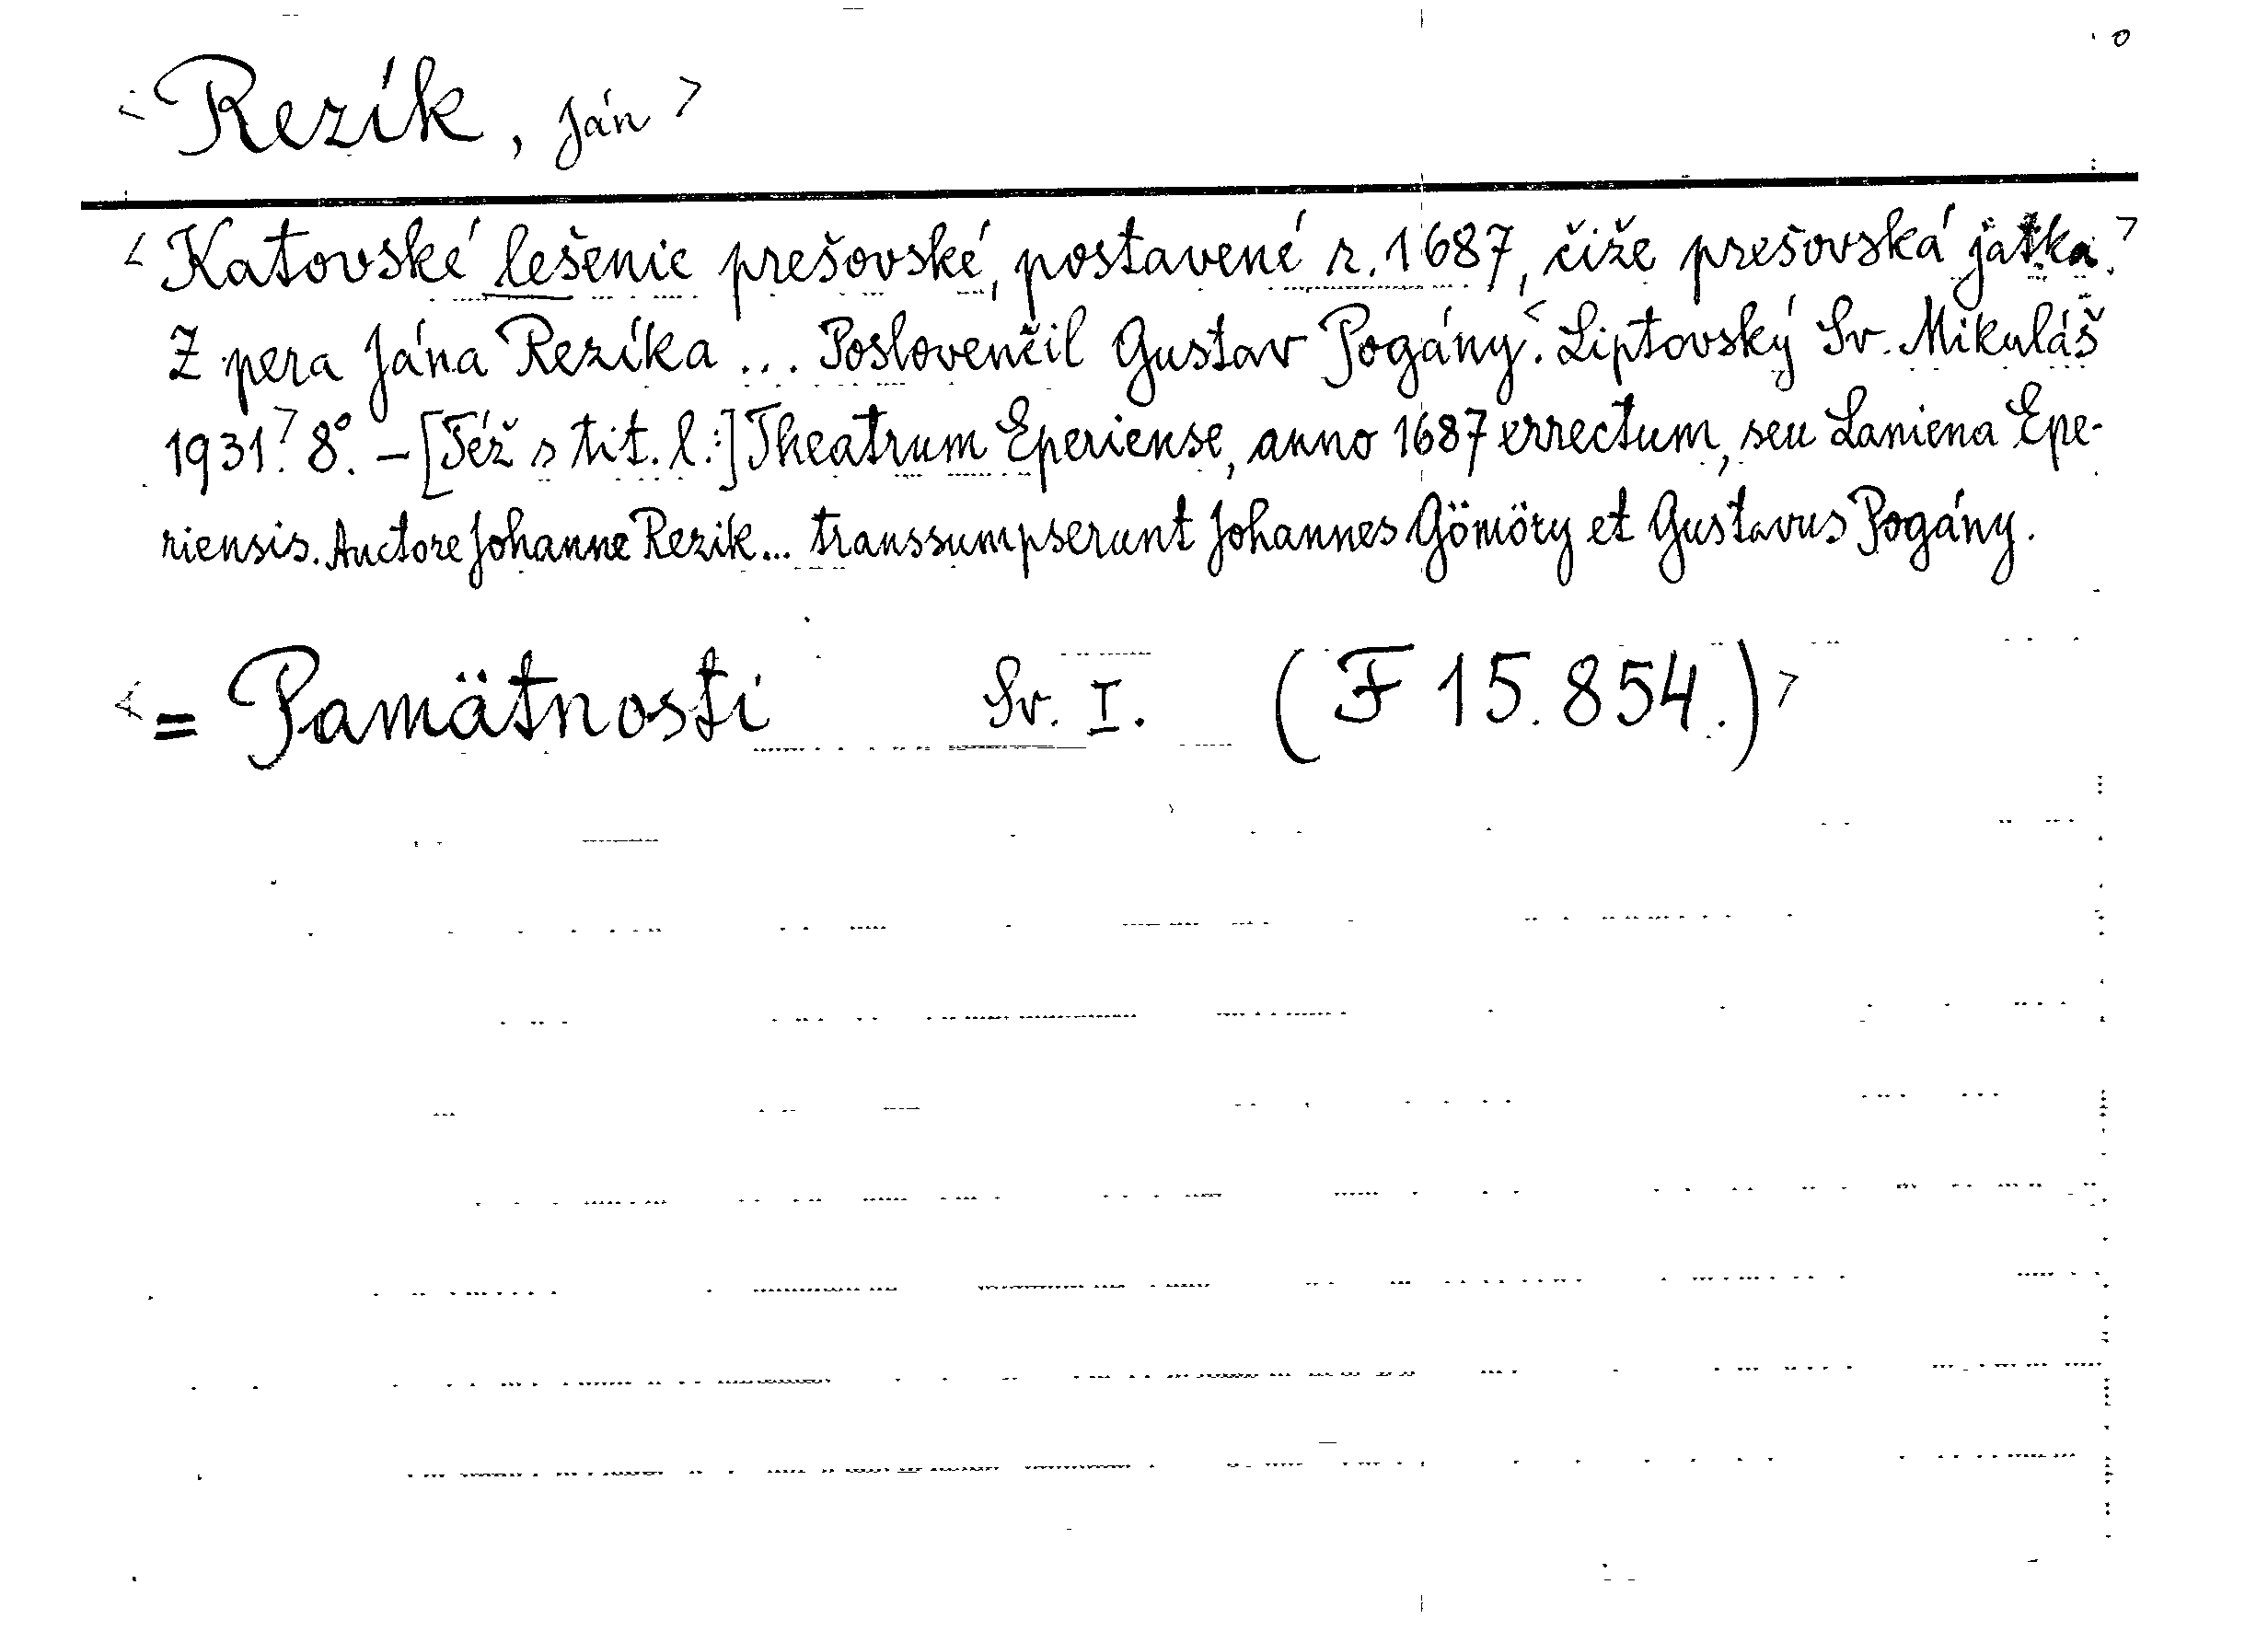 <Rezík, Ján>
<Katovské lešenie prešovské, postavené r. 1687, čiže prešovská jatka.>
Z pera Jána Rezíka ... Poslovenčil Gustav Pogány.<Liptovský Sv. Mikuláš
1931.> 8°. – [Též s tit. l.:] Theatrum Eperiense, anno 1687 errectum, seu Laniena Epe-
riensis. Auctore Johanne Rezik... transsumpserunt Johannes Gömöry et Gustavus Pogány.
<= Pamätnosti Sv. I. (F 15.854.)>